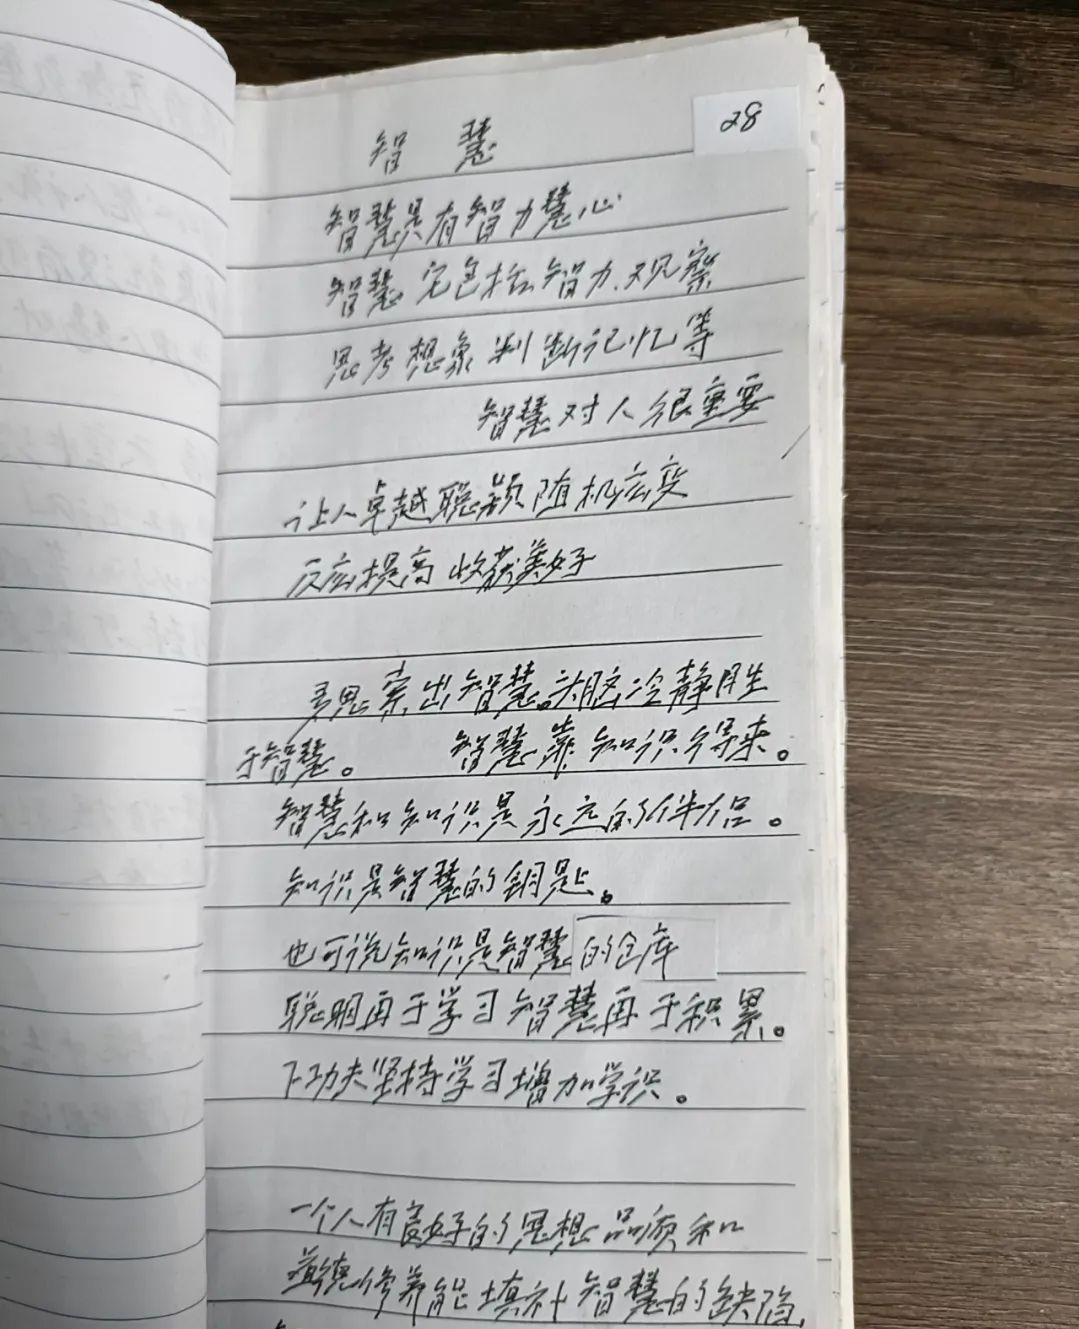 28
智慧
智慧具有智力慧心
智慧它包括智力、观察
思考想象判断记忆等
智慧对人很重要
让人卓越聪颖随机应变
反应提高收获美好
多思索出智慧。头脑冷静用生
于智慧。 智慧靠知识得来。
智慧和知识是永远的伴侣。
知识是智慧的钥匙。
也可说知识是智慧的仓库
聪明再于学习智慧再于积累。
下功夫坚持学习增加学识。
一个人有良好的思想品质和
道德修养能填补智慧的缺陷,